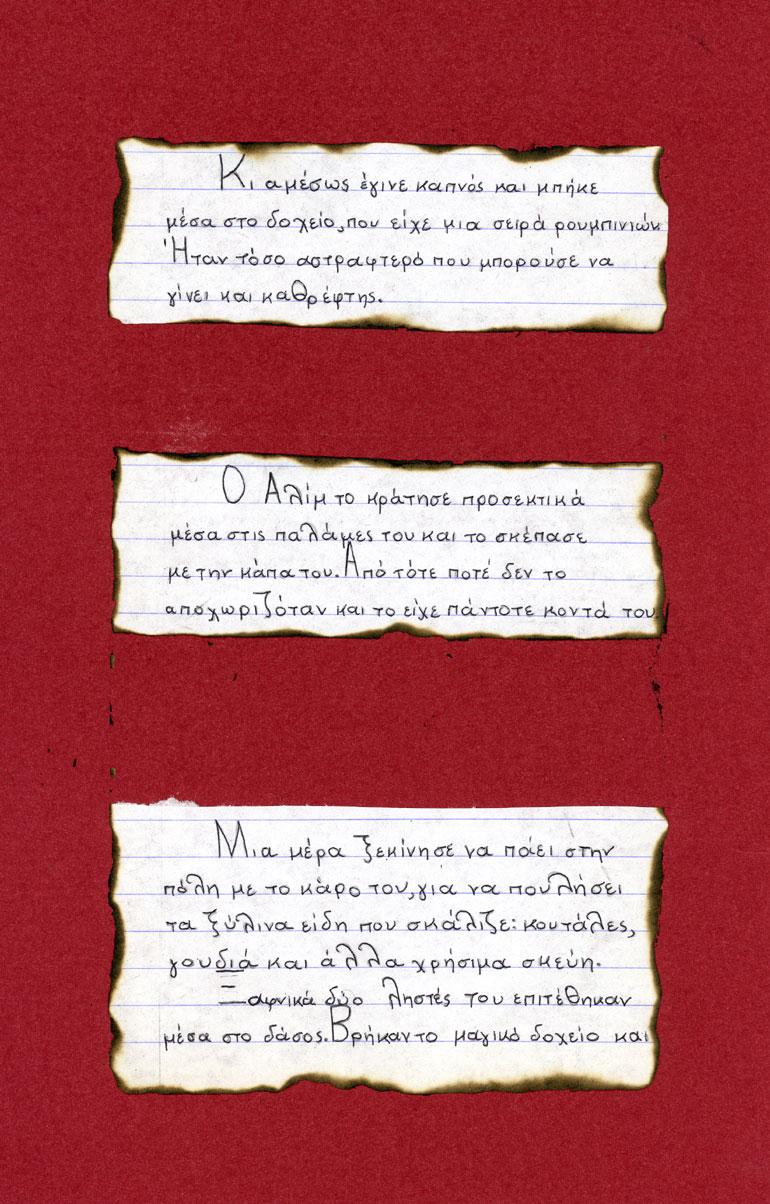 Κι αμέσως έγινε καπνός και μπήκε
μέσα στο δοχείο, που είχε μια σειρά ρουμπινιών
Ήταν τόσο αστραφτερό που μπορούσε να
γίνει και καθρέφτης.
Ο Αλίμ το κράτησε προσεκτικά
μέσα στις παλάμες του και το σκέπασε
με την κάπα του. Από τότε ποτέ δεν το
αποχωριζόταν και το είχε πάντοτε κοντά του.
Μια μέρα ξεκίνησε να πάει στην
πόλη με το κάρο του, για να πουλήσει
τα ξύλινα είδη που σκάλιζε: κουτάλες,
γουδιά και άλλα χρήσιμα σκεύη.
Ξαφνικά δύο ληστές του επιτέθηκαν
μέσα στο δάσος. Βρήκαν το μαγικό δοχείο και